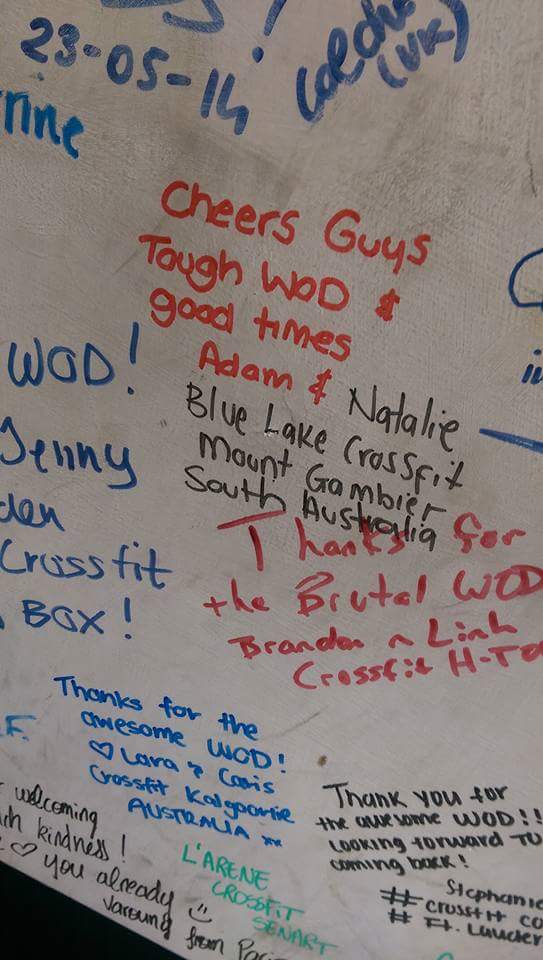 23-05-14
(UK)
rine
Cheers Guys
Tough WOD &
good times
Adam & Natalie
Blue Lake Crossfit
Mount Gambier
South Australia
WOD!
Jenny
den
Crossfit
BOX!
Thanks for
the Brutal WOD
Brandon n Link
Crossfit H-To
Thanks for the
awesome WOD!
♡ Lara & Caris
Crossfit Kalgoorlie
AUSTRALIA xx
F.
welcoming
kindness!
♡ you already
from
L'ARENE
CROSSFIT
SENART
Thank you for
the awesome WOD!!
Looking forward TO
coming back!
Stephanie
# crossfit co
# Ft. Lauder